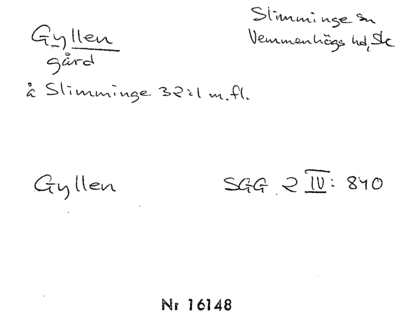 Gyllen
gård
Slimminge sn
Vemmenhögs hd, Sk
å Slimminge 32:1 m.fl.
Gyllen
SGG 2 IV: 840
Nr 16148